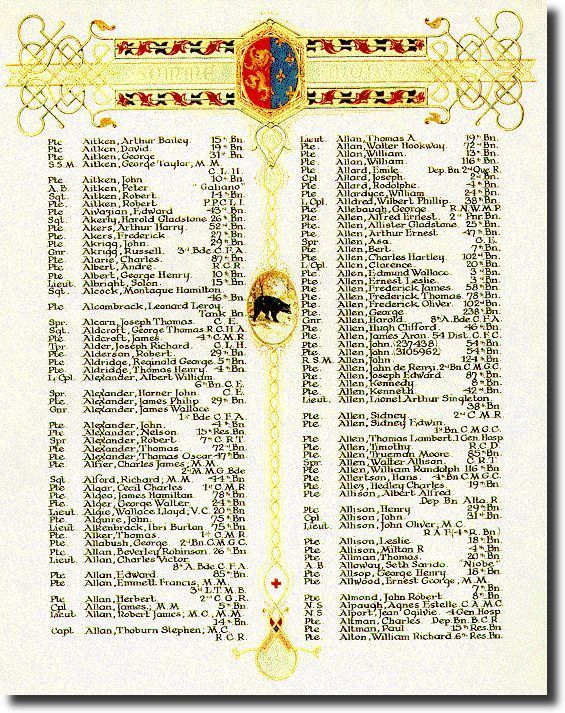 Pte Aitken, Arthur Bailey 15th Bn.
Pte Aitken, David 19th Bn.
Pte Aitken, George 31st Bn.
S.S.M. Aitken, George Taylor; M.M.
C.L.H.
Pte Aitken, John 10th Bn.
A.B. Aitken, Peter "Galiano"
Sgt Aitken, Robert 14th Bn.
Pte Aitken, Robert P.P.C.L.I.
Pte Aivazian, Edward 43rd Bn.
Sgt Akerly, Harold Gladstone 26th Bn.
Pte Akers, Arthur Harry 52nd Bn.
Pte Akers, Frederick 27th Bn.
Pte Akrigg, John 29th Bn.
Gnr Akrigg, Russell. 3rd Bde C.F.A.
Pte Alarie, Charles 87th Bn.
Pte Albert, André R.C.R.
Pte Albert, George Henry. 10th Bn.
Lieut Albright, Solon 15th Bn.
Sgt Alcock, Montague Hamilton
46th Bn.
Pte Alcombrack, Leonard Leroy
Tank Bn.
Spr. Alcorn, Joseph Thomas. C.E.
Sgt Aldcroft, George Thomas R.C.H.A.
Pte Aldcroft, James 4th C.M.R.
Tpr. Alder, Joseph Richard C.L.H.
Pte Alderson, Robert 29th Bn.
Pte Aldridge, Reginald George 5th Bn.
Pte Aldridge, Thomas Henry 4th Bn.
L. Cpl Alexander, Albert William
6th Bn. C.E.
Spr. Alexander, Harmer John C.E.
Pte Alexander, James Philip 29th Bn.
Gnr Alexander, James Wallace
1st Bde C.F.A.
Pte Alexander, John 4th Bn.
Pte Alexander, Nelson 15th Res. Bn.
Spr. Alexander, Robert 7th C.R.T.
Pte Alexander, Thomas 72nd Bn.
Pte Alexander, Thomas Oscar 47th Bn.
Pte Alfier, Charles James; M.M.
2nd M.M.G. Bde
Sgt Alford, Richard; M.M. 44th Bn.
Pte Algar, Cecil Charles 1st C.M.R.
Pte Algeo, James Hamilton 78th Bn.
Pte Alger, George Walter 24th Bn.
Lieut Algie, Wallace Lloyd; V.C. 20th Bn.
Pte Alguire, John 75th Bn.
Lieut Alkenbrack, Ibri Burton 75th Bn.
Pte Alker, Thomas 1st C.M.R.
Pte Allabush, George 2nd Bn. C.M.G.C.
Pte Allan, Beverley Robinson 26th Bn.
Lieut Allan, Charles Victor
8th A. Bde C.F.A.
Pte Allan, Edward 85th Bn.
Pte Allan, Emmett Francis; M.M.
3rd L.T.M.B.
Pte Allan, Herbert 2nd C.G.R.
Cpl Allan, James; M.M. 5th Bn.
Lieut Allan, Robert James; M.C., M.M.
14th Bn.
Capt. Allan, Thoburn Stephen; M.C.
R.C.R.
Lieut Allan, Thomas A 19th Bn.
Pte Allan, Walter Hookway 72nd Bn.
Pte Allan, William 13th Bn.
Pte Allan, William 116th Bn.
Pte Allard, Emile. Dep. Bn. 2nd Que. R.
Cpl Allard, Joseph 2nd Bn.
Pte Allard, Rodolphe 4th Bn.
Pte Allardyce, William 24th Bn.
L. Cpl Alldred, Wilbert Phillip 38th Bn.
Pte Allebaugh, George R.N.W.M.P.
Pte Allen, Alfred Ernest 2nd Pnr Bn.
Pte Allen, Allister Gladstone 25th Bn.
Pte Allen, Arthur Ernest 47th Bn.
Spr. Allen, Asa C.E.
Pte Allen, Bert 7th Bn.
Pte Allen, Charles Hartley 102nd Bn.
L. Cpl Allen, Clarence 20th Bn.
Pte Allen, Edmund Wallace 3rd Bn.
Pte Allen, Ernest Leslie 3rd Bn.
Pte Allen, Frederick James 58th Bn.
Pte Allen, Frederick Thomas 78th Bn.
Pte Allen, Frederick Oliver 102nd Bn.
Pte Allen, George 238th Bn.
Gnr Allen, Harold 8th A. Bde C.F.A.
Pte Allen, Hugh Clifford 46th Bn.
Pte Allen, James Aron 54 Dist. C.F.C.
Pte Allen, John (237438) 54th Bn.
Pte Allen, John (3105962) 54th Bn.
R.S.M. Allen, John 124th Bn.
Pte Allen, John de Renzi 2nd Bn. C.M.G.C.
Pte Allen, Joseph Edward 87th Bn.
Pte Allen, Kennedy 8th Bn.
Pte Allen, Kenneth 42nd Bn.
Lieut Allen, Lionel Arthur Singleton
38th Bn.
Pte Allen, Sidney 2nd C.M.R.
Pte Allen, Sidney Edwin
1st Bn. C.M.G.C.
Pte Allen, Thomas Lambert. 1 Gen. Hosp.
Pte Allen, Timothy R.C.D.
Pte Allen, Trueman Moore 85th Bn.
Spr. Allen, Walter Allison C.R.T.
Pte Allen, William Randolph 116th Bn.
Pte Allertson, Hans 4th Bn. C.M.G.C.
Pte Allez, Hedley Charles 19th Bn.
Pte Allison, Albert Alfred
Dep. Bn. Alta. R.
Pte Allison, Henry 29th Bn.
Cpl Allison, John 31st Bn.
Lieut Allison, John Oliver; M.C.
R.A.F. (4th R. Bn.)
Pte Allison, Leslie 18th Bn.
Pte Allison, Milton R 4th Bn.
Pte Allman, Thomas 20th Bn.
A.B. Alloway, Seth Sarido "Niobe"
Pte Allsop, George Henry 18th Bn.
Pte Allwood, Ernest George; M.M.
7th Bn.
Pte Almond, John Robert 8th Bn.
N.S. Alpaugh, Agnes Estelle. C.A.M.C.
N.S. Alport, Jean Ogilvie 4 Gen. Hosp.
Pte Altman, Charles Dep. Bn. B.C.R.
Pte Altman, Paul 15th Res. Bn.
Pte Alton, William Richard 6th Res. Bn.